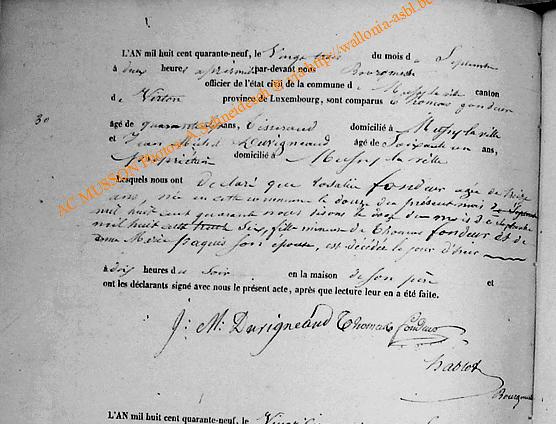 L'AN mil huit cent quarante-neuf, le Vingt trois du mois de Septembre
à deux heures après midi par-devant nous Bourgmestre
officier de l'état civil de la commune de Mussy la ville canton
de Virton province de Luxembourg, sont comparus Thomas fondeur
30
âgé de quarante ans, domicilié à Mussy la ville
et Jean Michel Duvigneaud âgé de Soixante un ans,
Propriétaire domicilié à Mussy la ville
Lesquels nous ont déclaré que Rosalie fondeur agée de treize
ans, née en cette commune le douze du présent mois de Septembre
mil huit cent quarante nous disons le douze du mois de septembre
mil huit cent trente Six, fille mineure de Thomas fondeur et de
Marie paquis son épouse, est décédée le jour d'hier
à trois heures du Soir en la maison de son père et
ont les déclarants signé avec nous le présent acte, après que lecture leur en a été faite.
J: M: Duvigneaud Thomas Fondeur
hablot
Bourgmestre
L'AN mil huit cent quarante-neuf, le
AC MUSSON Photos A.Schneidesch @ cria http://wallonia-asbl.be